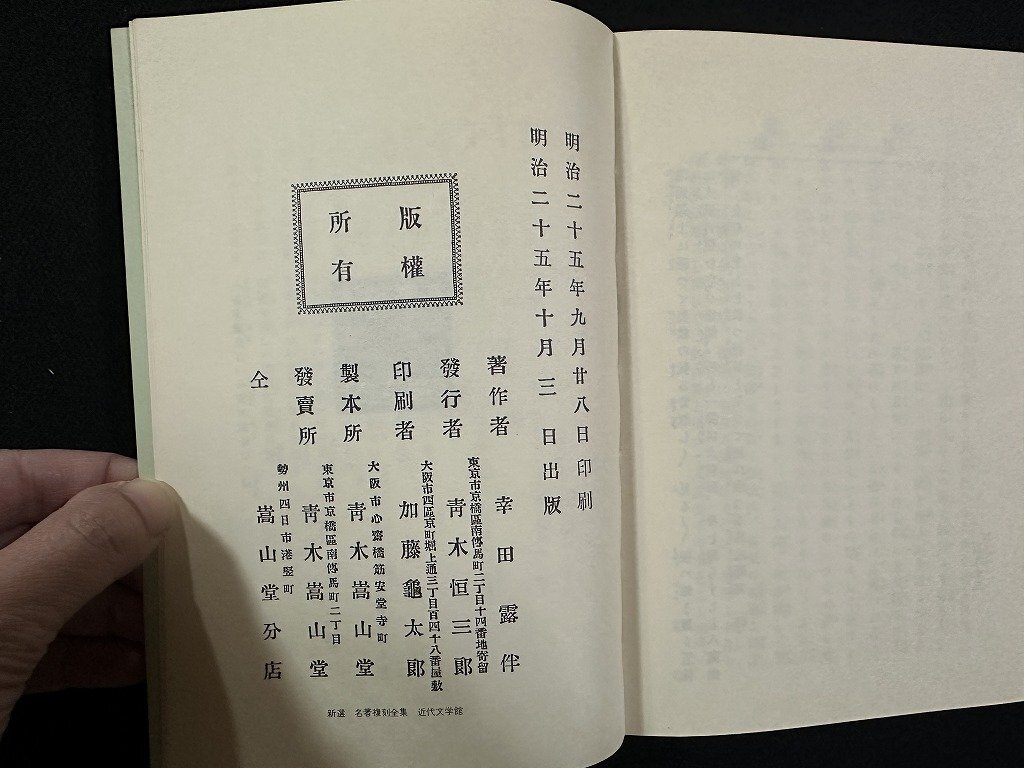 明治二十五年九月廿八日印刷
明治二十五年十月三日出版
版權
所有
著作者 幸田露伴
東京市京橋區南傳馬町二丁目十四番地寄留
發行者 青木恒三郎
大阪市西區京町堀上通三丁目百四十八番屋敷
印刷者 加藤龜太郎
大阪市心齋橋筋安堂寺町
製本所 青木嵩山堂
東京市京橋區南傳馬町二丁目
發賣所 青木嵩山堂
勢州四日市港竪町
仝 嵩山堂分店
新選 名著複刻全集 近代文学館